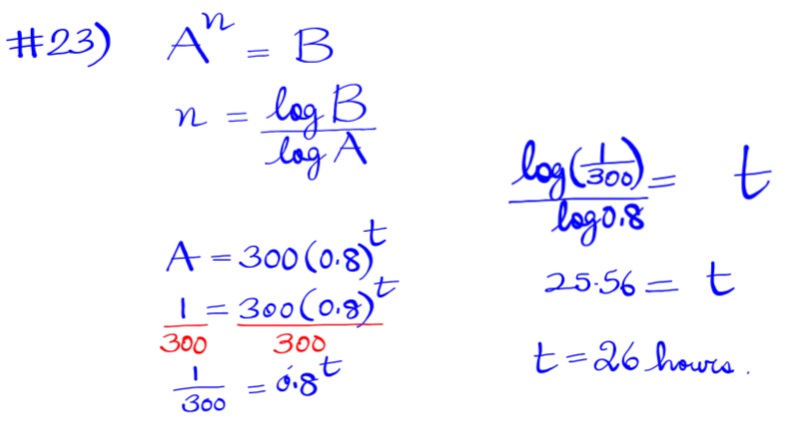 #23) Aⁿ = B
n = log B / log A
A = 300(0.8)^t
1/300 = 300(0.8)^t / 300
1/300 = 0.8^t
log(1/300) / log 0.8 = t
25.56 = t
t = 26 hours.